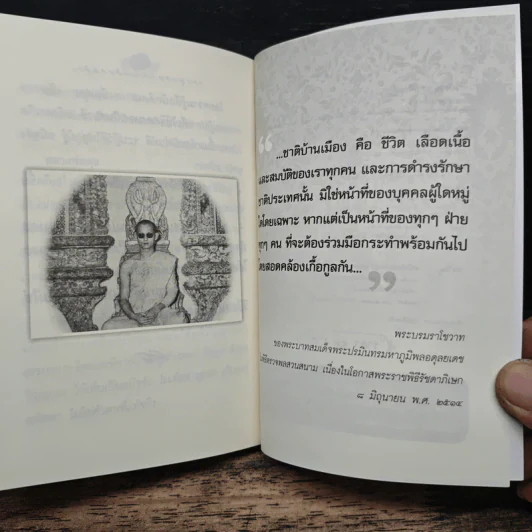 “
...ชาติบ้านเมือง คือ ชีวิต เลือดเนื้อ
และสมบัติของเราทุกคน และการดำรงรักษา
ชาติประเทศนั้น มิใช่หน้าที่ของบุคคลผู้ใดหมู่
ใดโดยเฉพาะ หากแต่เป็นหน้าที่ของทุกๆ ฝ่าย
ทุกๆ คน ที่จะต้องร่วมมือกระทำพร้อมกันไป
โดยสอดคล้องเกื้อกูลกัน...
”
พระบรมราโชวาท
ของพระบาทสมเด็จพระปรมินทรมหาภูมิพลอดุลยเดช
ตรวจพลสวนสนาม เนื่องในโอกาสพระราชพิธีรัชดาภิเษก
๘ มิถุนายน พ.ศ. ๒๕๑๔